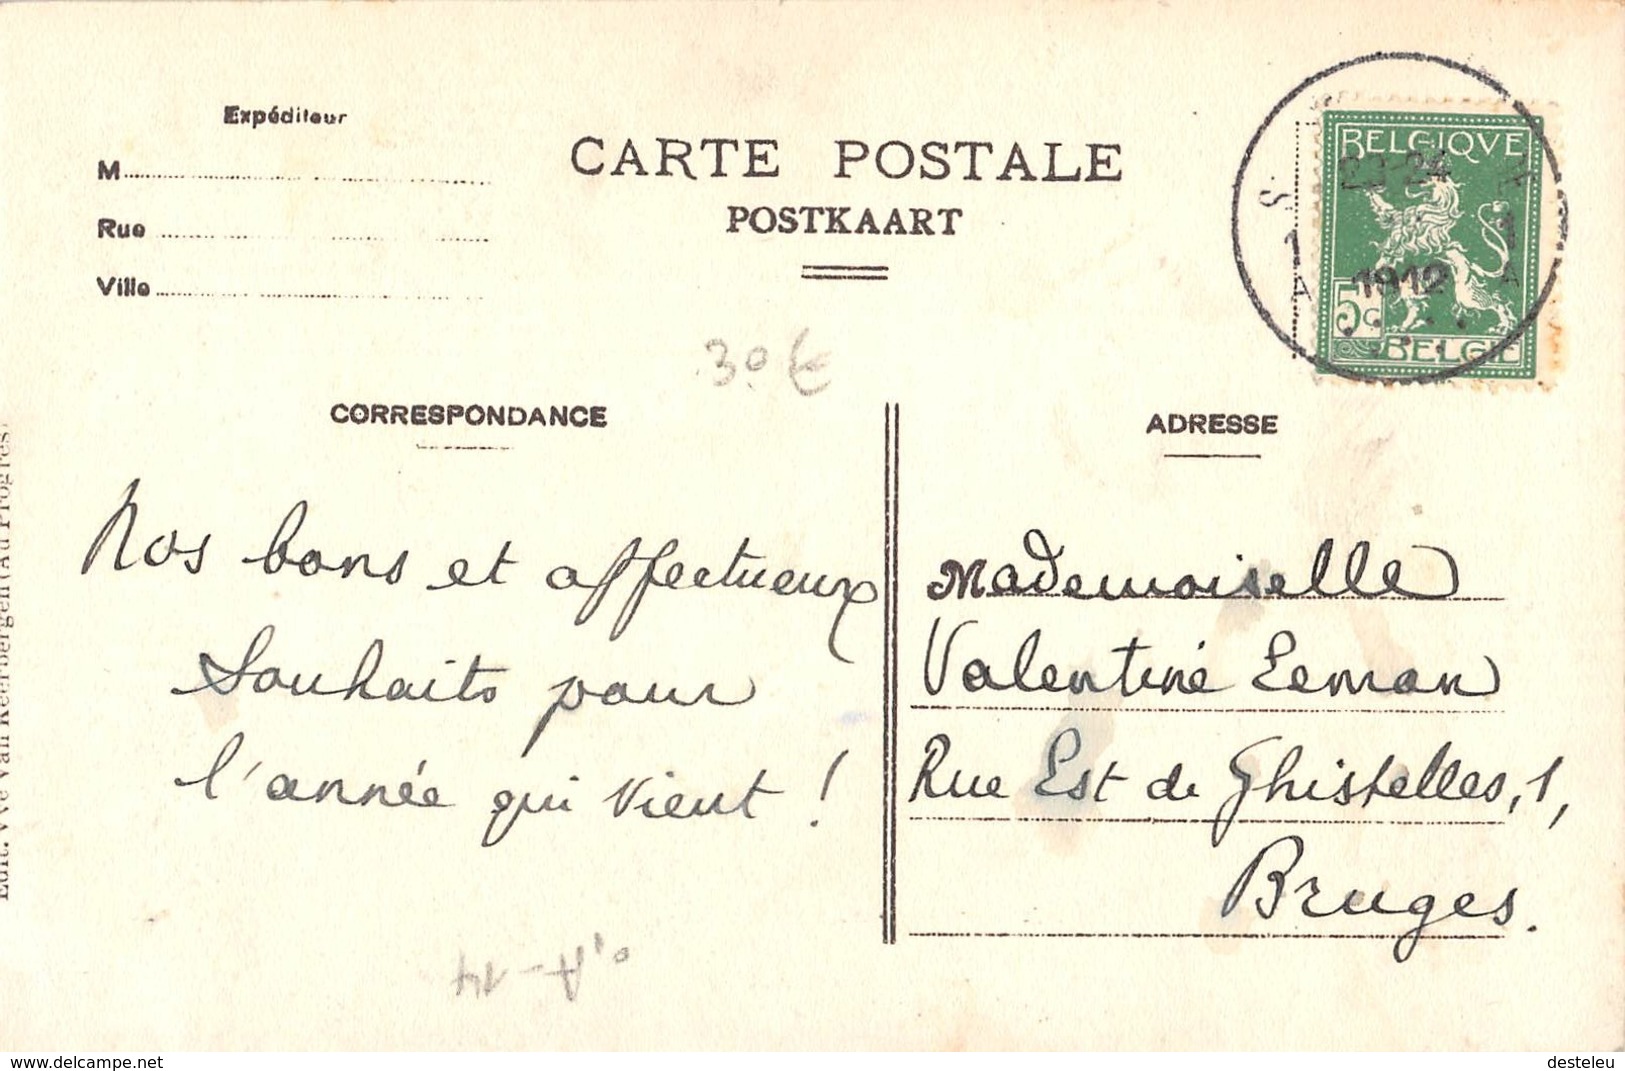 Expéditeur
M
Rue
Ville
CARTE POSTALE
POSTKAART
BELGIQVE
23-24
1912
5c
BELGIË
30 €
CORRESPONDANCE
ADRESSE
Nos bons et affectueux
souhaits pour
l'année qui vient !
Mademoiselle
Valentine Eeman
Rue Est de Ghistelles, 1,
Bruges.
Edit. Vve Van Keerbergen (Au Progrès)
delcampe.net
desteleu